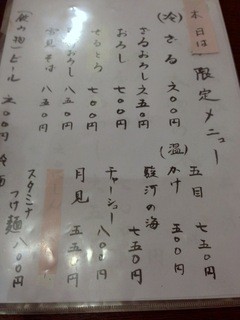 本日は 限定メニュー
(冷) ざる 六〇〇円
六五〇円
おろし 七〇〇円
七〇〇円
おろし 八五〇円
そば 八五〇円
(飲み物) ビール
五目 七五〇円
(温) かけ 五〇〇円
駿河の海 七五〇円
チャーシュー 八〇〇円
月見 五五〇円
スタミナ
つけ麺 八〇〇円